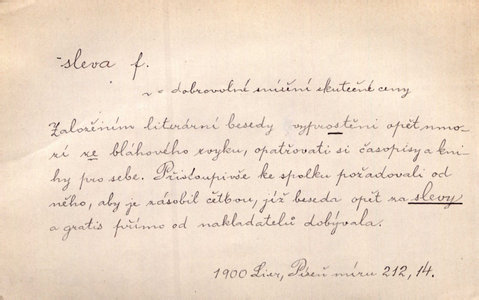 sleva f.
~ = dobrovolné snížení skutečné ceny
Založením literární besedy vyproštěni opět mno-
zí ze bláhového zvyku, opatřovati si časopisy a kni-
hy pro sebe. Přistoupivše ke spolku požadovali od
něho, aby je zásobil četbou, již beseda opět za slevy
a gratis přímo od nakladatelů dobývala.
1900 Lier, Píseň míru 212, 14.